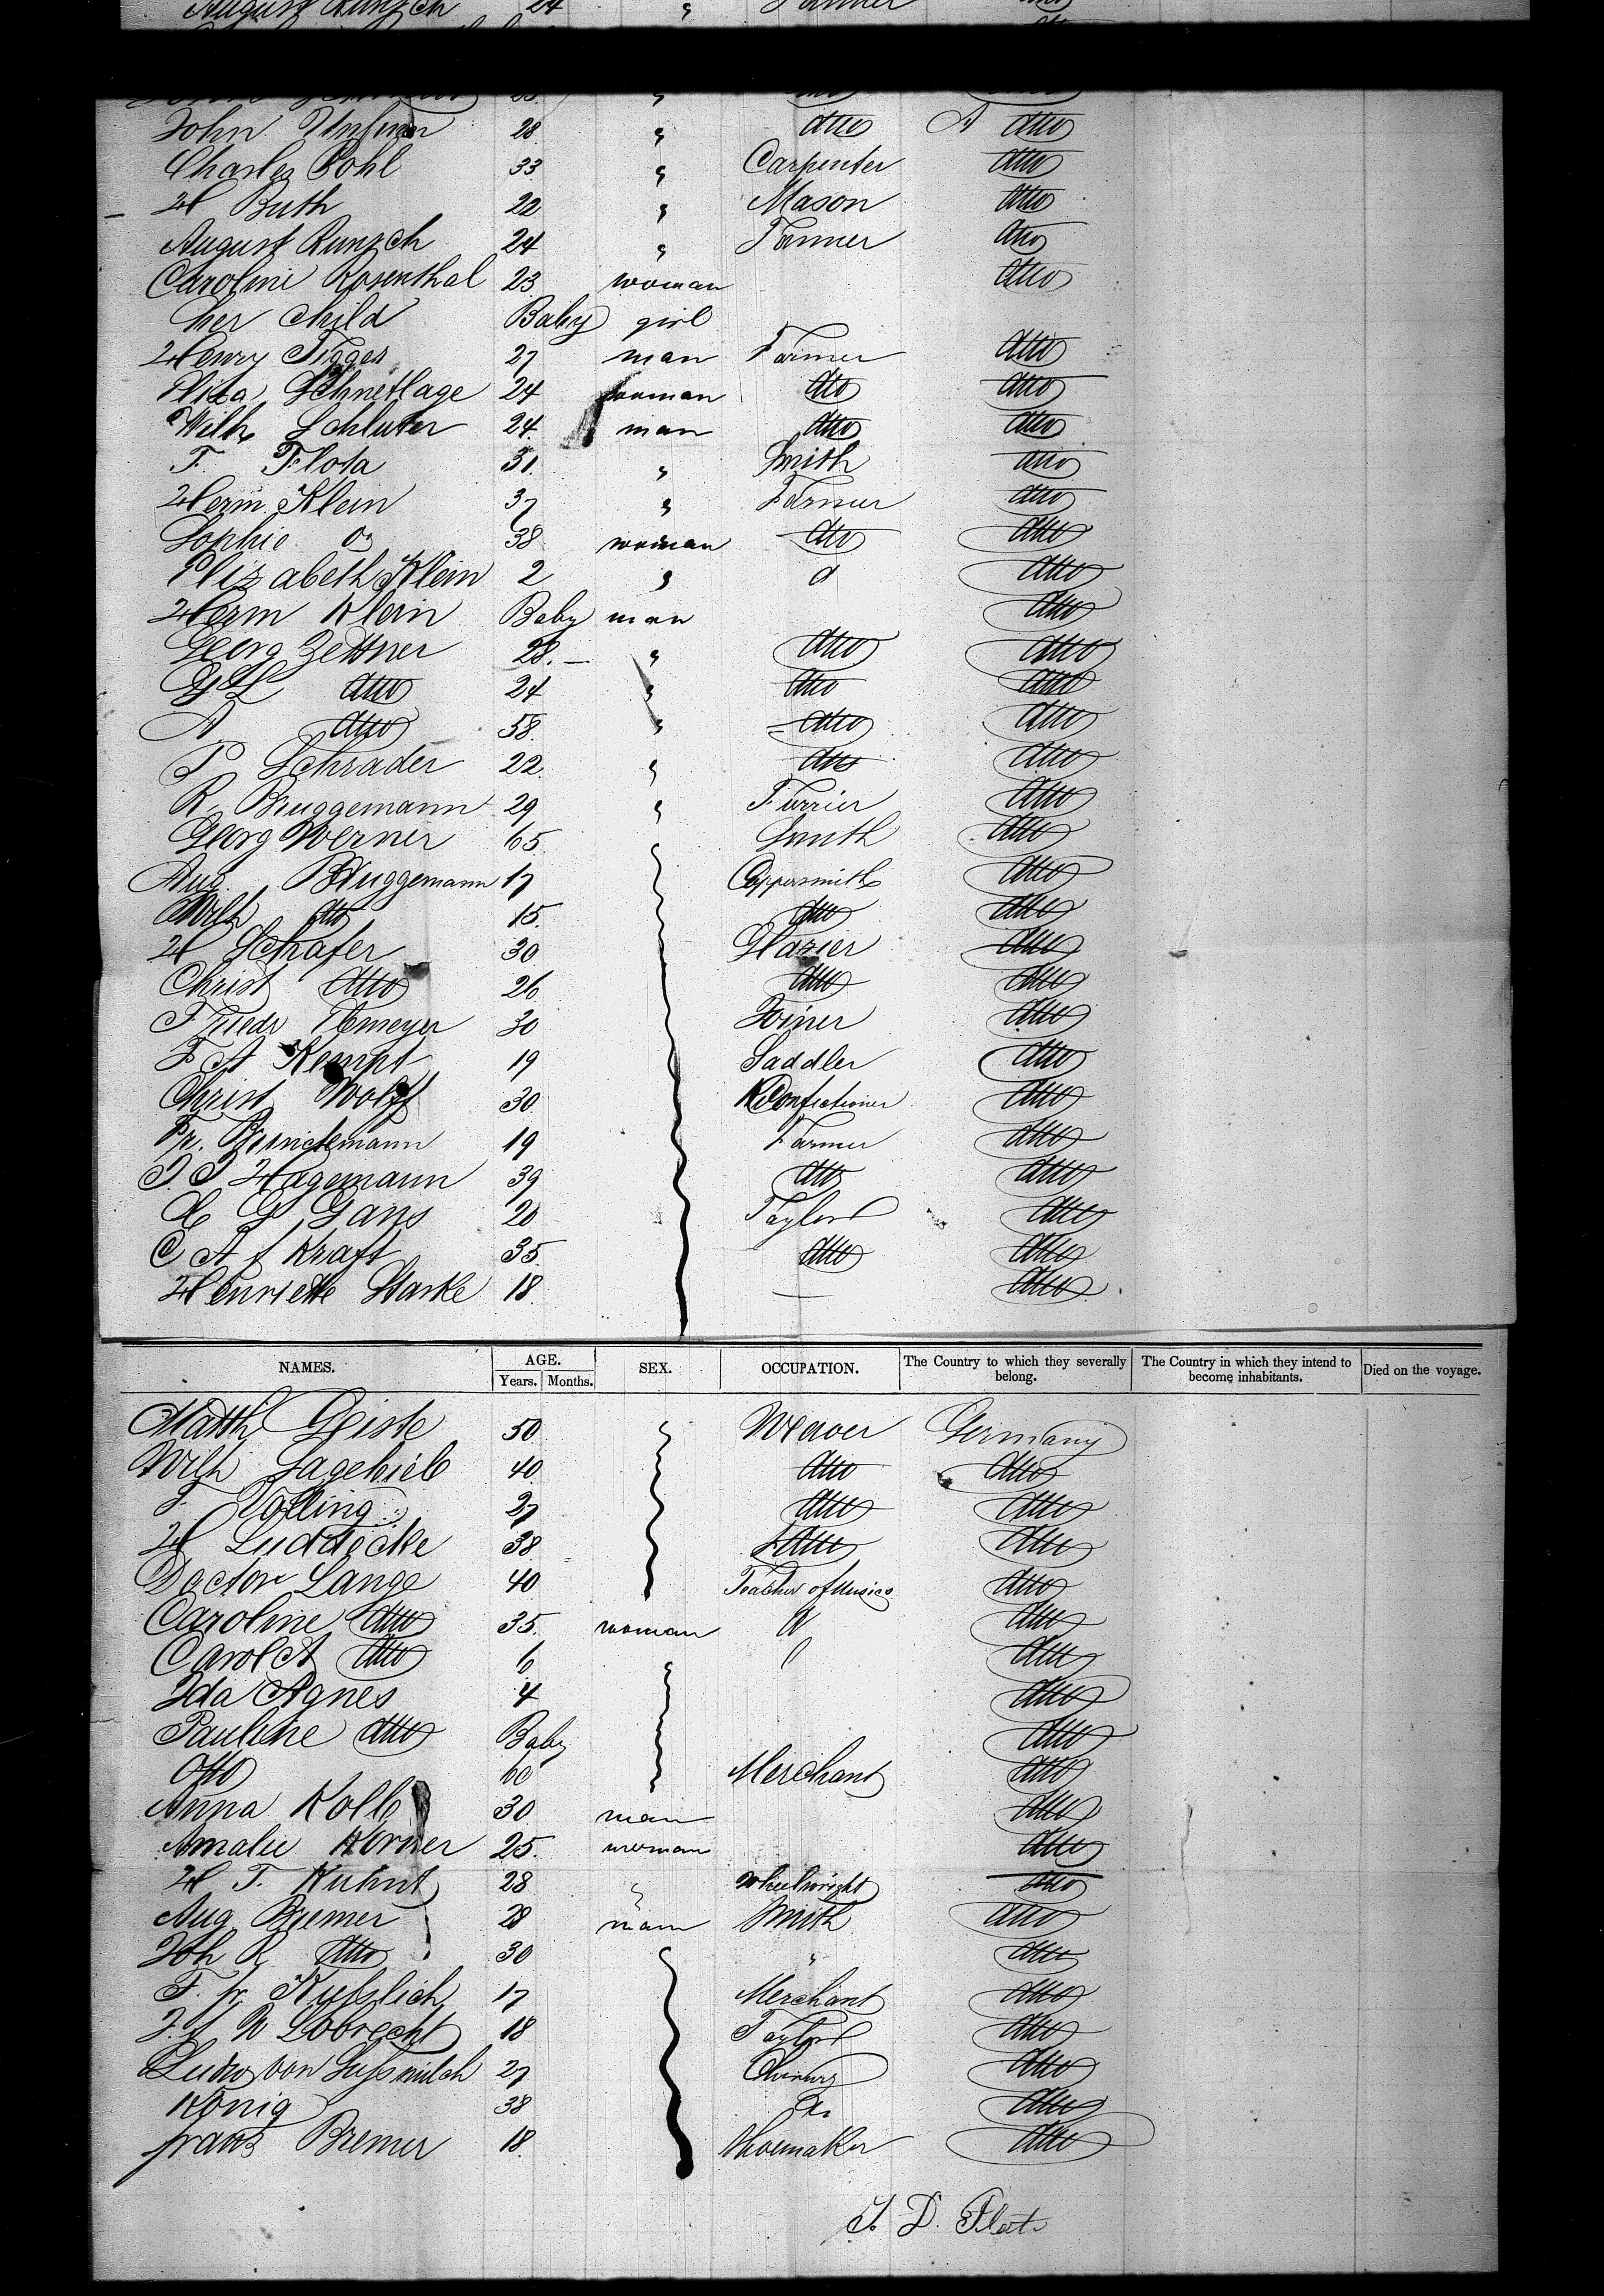 August Runzch 24 " Farmer
John 28 " ditto ditto
Charles Pohl 33 " Carpenter ditto
H Buth 22 " Mason ditto
August Runzch 24 " Farmer ditto
Caroline Rosenthal 23 woman ditto
her child Baby girl
Henry Tigges 27 man Farmer ditto
Eliza Schnetlage 24 woman ditto ditto
Wilh Schluter 24 man ditto ditto
F. Flota 31 " Smith ditto
Herm Klein 37 " Farmer ditto
Sophie do 38 woman ditto ditto
Elizabeth Klein 2 " d ditto
Herm Klein Baby man ditto
Georg Zettner 28. " ditto ditto
ditto 24 " ditto ditto
A ditto 58 " ditto ditto
P Schrader 22 " ditto ditto
R Bruggemann 29 " Furrier ditto
Georg Werner 65 Smith ditto
Aug Bruggemann 17 Coppersmith ditto
Wilh ditto 15 ditto ditto
H Schafer 30 Glazier ditto
Christ ditto 26 ditto ditto
Friedr 30 Joiner ditto
F A Kempt 19 Saddler ditto
Christ Wolff 30 Confectioner ditto
Fr. 19 Farmer ditto
Hagemann 39 ditto ditto
G Gans 20 Taylor ditto
C A f Kraft 35 ditto ditto
Henriette Starke 18 — ditto
NAMES. AGE. Years. Months. SEX. OCCUPATION. The Country to which they severally belong. The Country in which they intend to become inhabitants. Died on the voyage.
Matth Geiste 50 Weaver Germany
Wilh Sagehieb 40 ditto ditto
F. Volling 27 ditto ditto
H Luddecke 38 ditto ditto
Doctor Lange 40 Teacher of Music ditto
Caroline ditto 35 woman ditto
Carol A ditto 6 ditto
Ida Agnes 4 ditto
Pauline ditto Baby ditto
Otto 60 Merchant ditto
Anna Kolb 30 man ditto
Amalie Korner 25. woman ditto
H F. Kuhnt 28 " Wheelwright ditto
Aug Bremer 28 man Smith ditto
Joh R ditto 30 " ditto
F. fr Kusslich 17 Merchant ditto
J. f W Lobrecht 18 Taylor ditto
Ludw von Sussmilch 27 ditto
Konig 38 ditto
franz Bremer 18 Shoemaker ditto